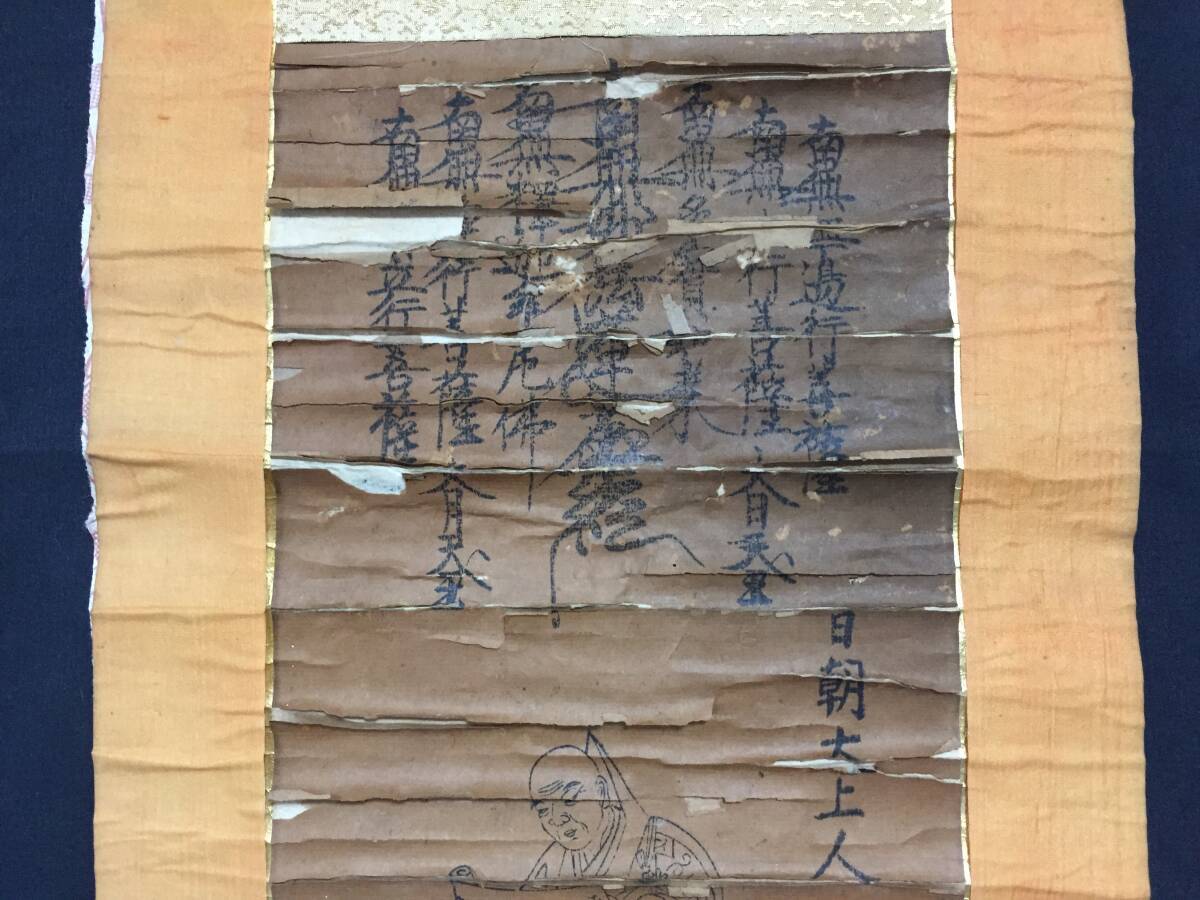 南無無邊行菩薩
南無 行菩薩 大日天王
南無多寶如来
南無妙法蓮華經
南無釋迦牟尼佛
南無 行菩薩 大月天王
南無 行菩薩
日朝大上人